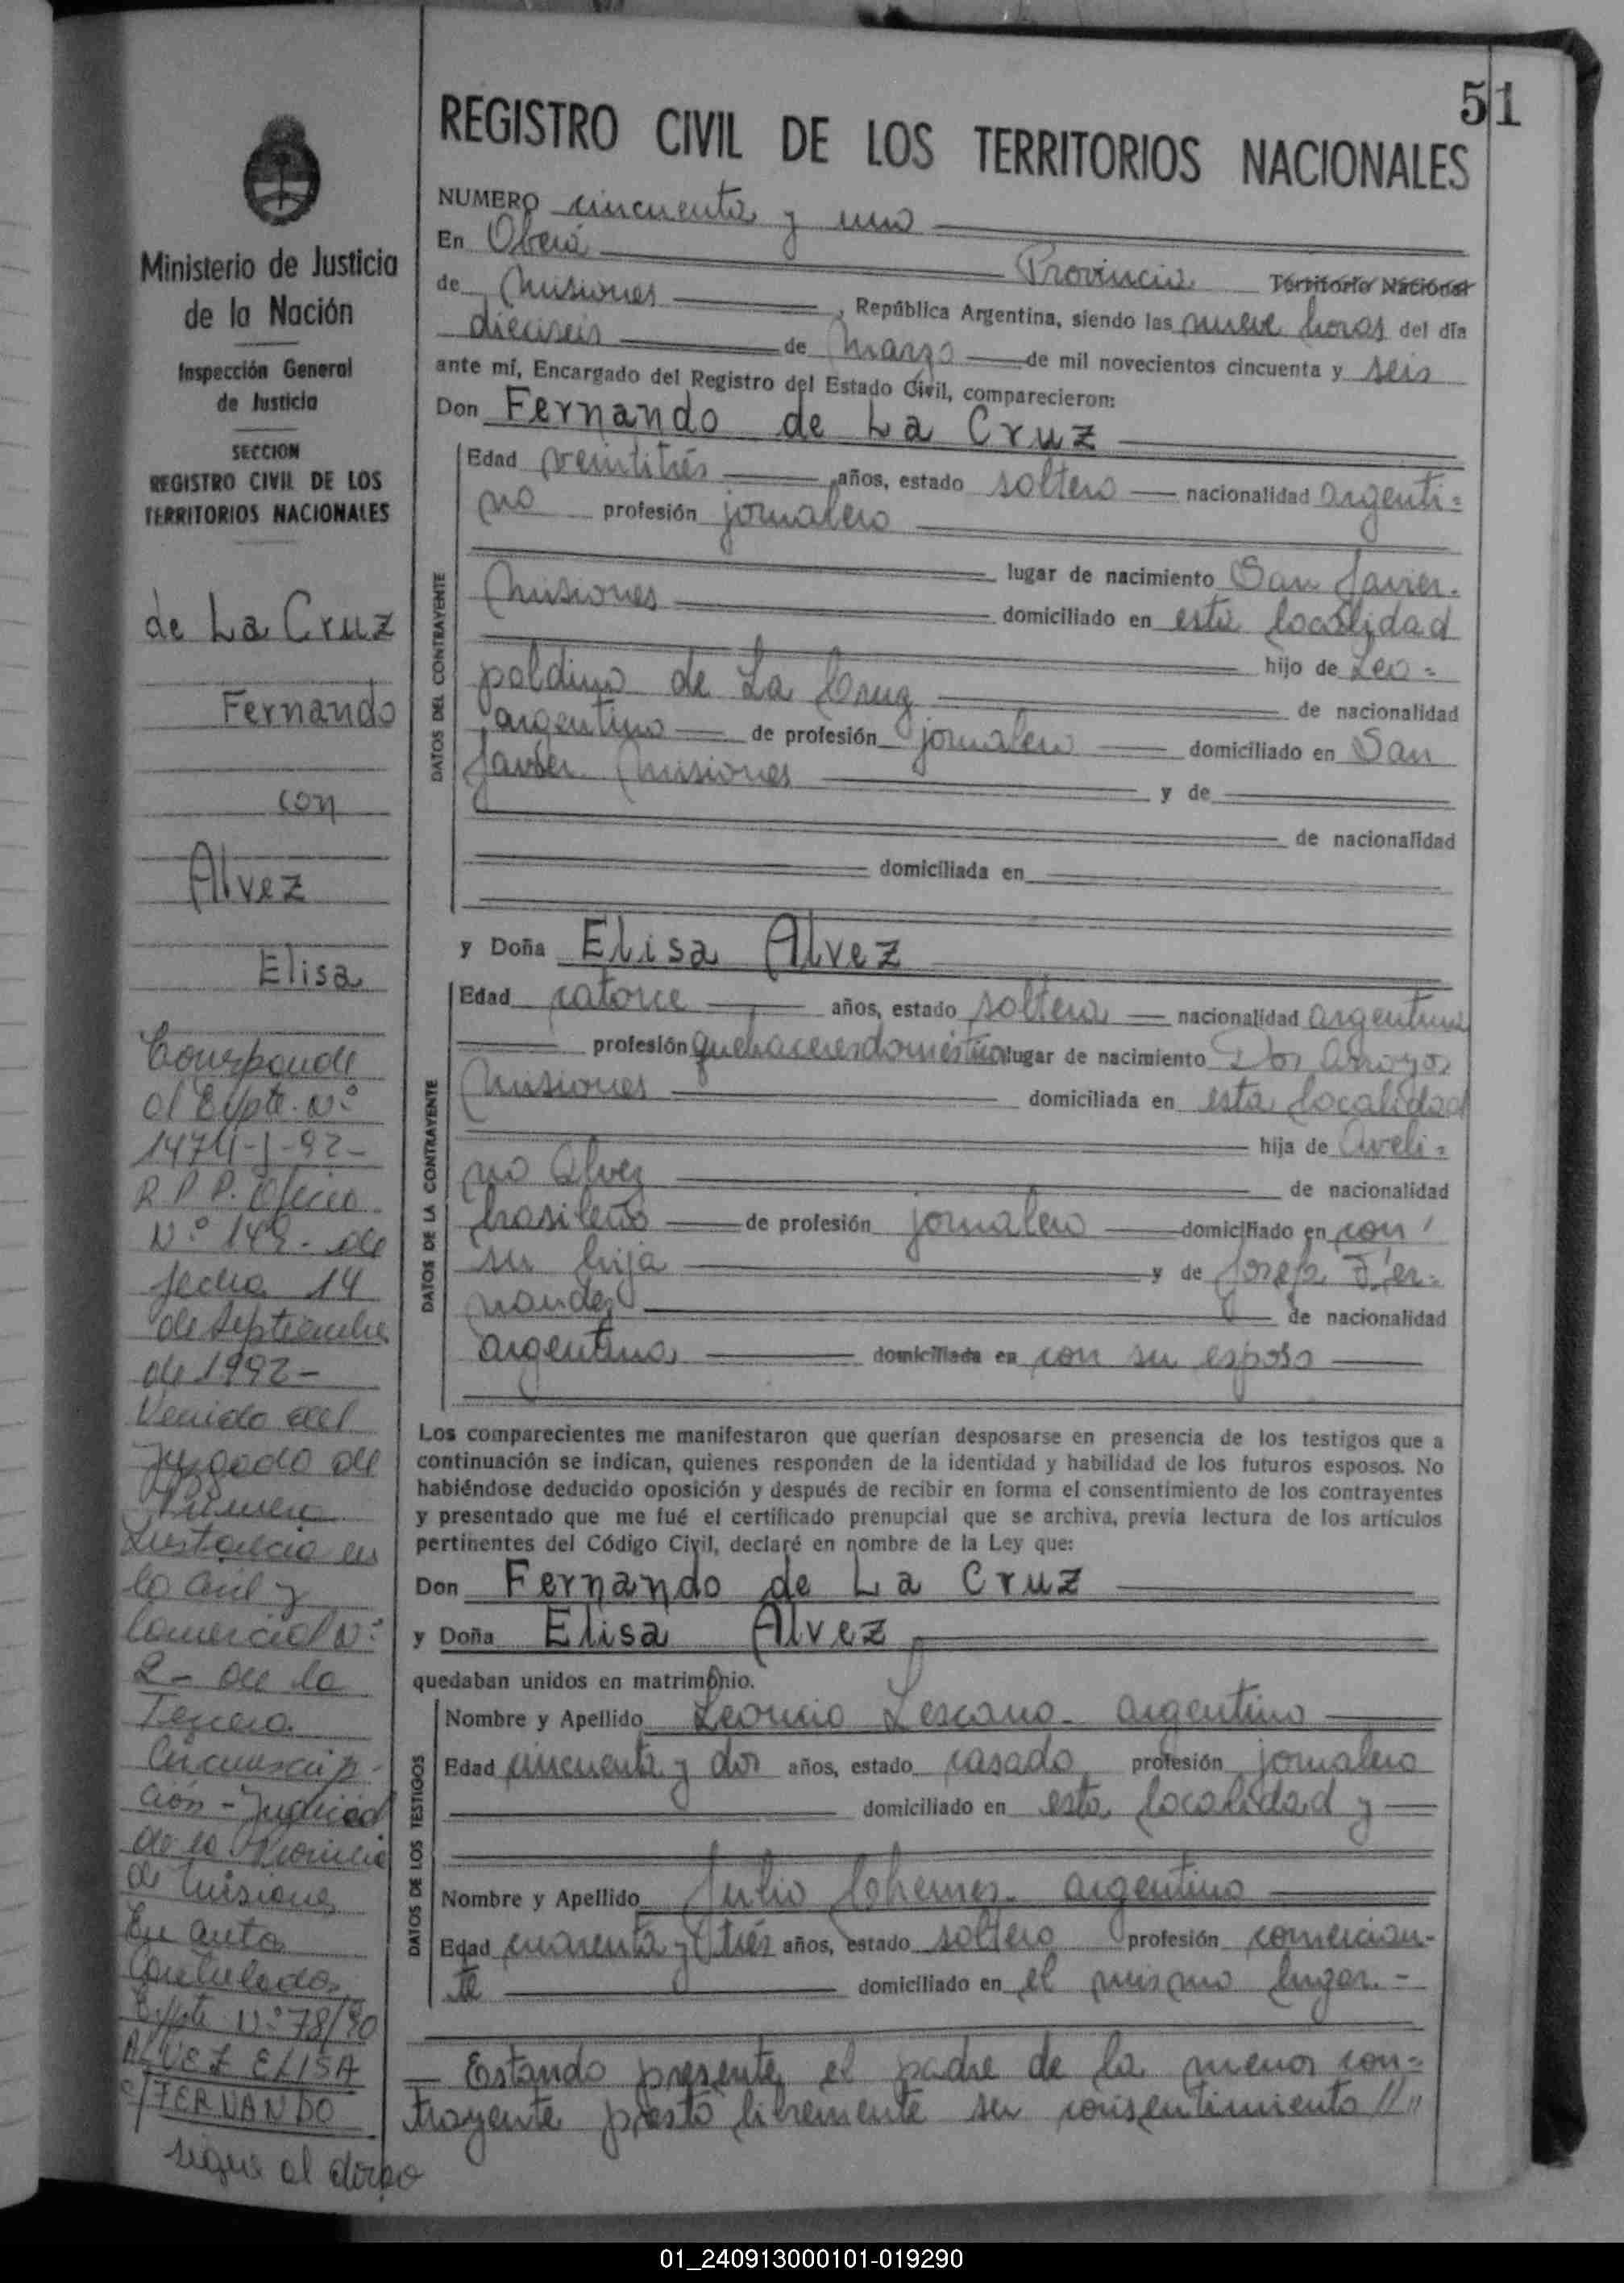 51
REGISTRO CIVIL DE LOS TERRITORIOS NACIONALES
NUMERO cincuenta y uno
En Oberá Provincia Territorio Nacional
de Misiones, República Argentina, siendo las nueve horas del día
dieciseis de Marzo de mil novecientos cincuenta y seis
ante mí, Encargado del Registro del Estado Civil, comparecieron:
Don Fernando de La Cruz
DATOS DEL CONTRAYENTE
Edad veintitrés años, estado soltero nacionalidad argenti=
no profesión jornalero
lugar de nacimiento San Javier.
Misiones domiciliado en esta localidad
hijo de Leo=
poldino de La Cruz de nacionalidad
argentino de profesión jornalero domiciliado en San
Javier. Misiones y de
de nacionalidad
domiciliada en
y Doña Elisa Alvez
DATOS DE LA CONTRAYENTE
Edad catorce años, estado soltera nacionalidad argentina
profesión quehaceres domésticos lugar de nacimiento Dos Arroyos
Misiones domiciliada en esta localidad
hija de Aveli=
no Alvez de nacionalidad
brasileño de profesión jornalero domiciliado en con
su hija y de Josefa Fer=
nandez de nacionalidad
argentina domiciliada en con su esposo
Los comparecientes me manifestaron que querían desposarse en presencia de los testigos que a
continuación se indican, quienes responden de la identidad y habilidad de los futuros esposos. No
habiéndose deducido oposición y después de recibir en forma el consentimiento de los contrayentes
y presentado que me fué el certificado prenupcial que se archiva, previa lectura de los artículos
pertinentes del Código Civil, declaré en nombre de la Ley que:
Don Fernando de La Cruz
y Doña Elisa Alvez
quedaban unidos en matrimonio.
DATOS DE LOS TESTIGOS
Nombre y Apellido Leoncio Lescano - argentino
Edad cincuenta y dos años, estado casado profesión jornalero
domiciliado en esta localidad y
Nombre y Apellido Julio argentino
Edad cuarenta y trés años, estado soltero profesión comercian-
te domiciliado en el mismo lugar. -
— Estando presente el padre de la menor con=
trayente prestó libremente su consentimiento //"
Ministerio de Justicia
de la Nación
Inspección General
de Justicia
SECCION
REGISTRO CIVIL DE LOS
TERRITORIOS NACIONALES
de La Cruz
Fernando
con
Alvez
Elisa
Corresponde
al Expte. Nº
1474-J-92-
R.P.P. Oficio
Nº 149- de
fecha 14
de Septiembre
de 1992-
Venido del
Juzgado de
Primera
Instancia en
lo Civil y
Comercial Nº
2- de la
Tercera
Circunscrip-
ción - Judicial
de la Provincia
de Misiones
En autos
Caratulados
Expte Nº 78/90
ALVEZ ELISA
c/ FERNANDO
sigue al dorso
01_240913000101-019290